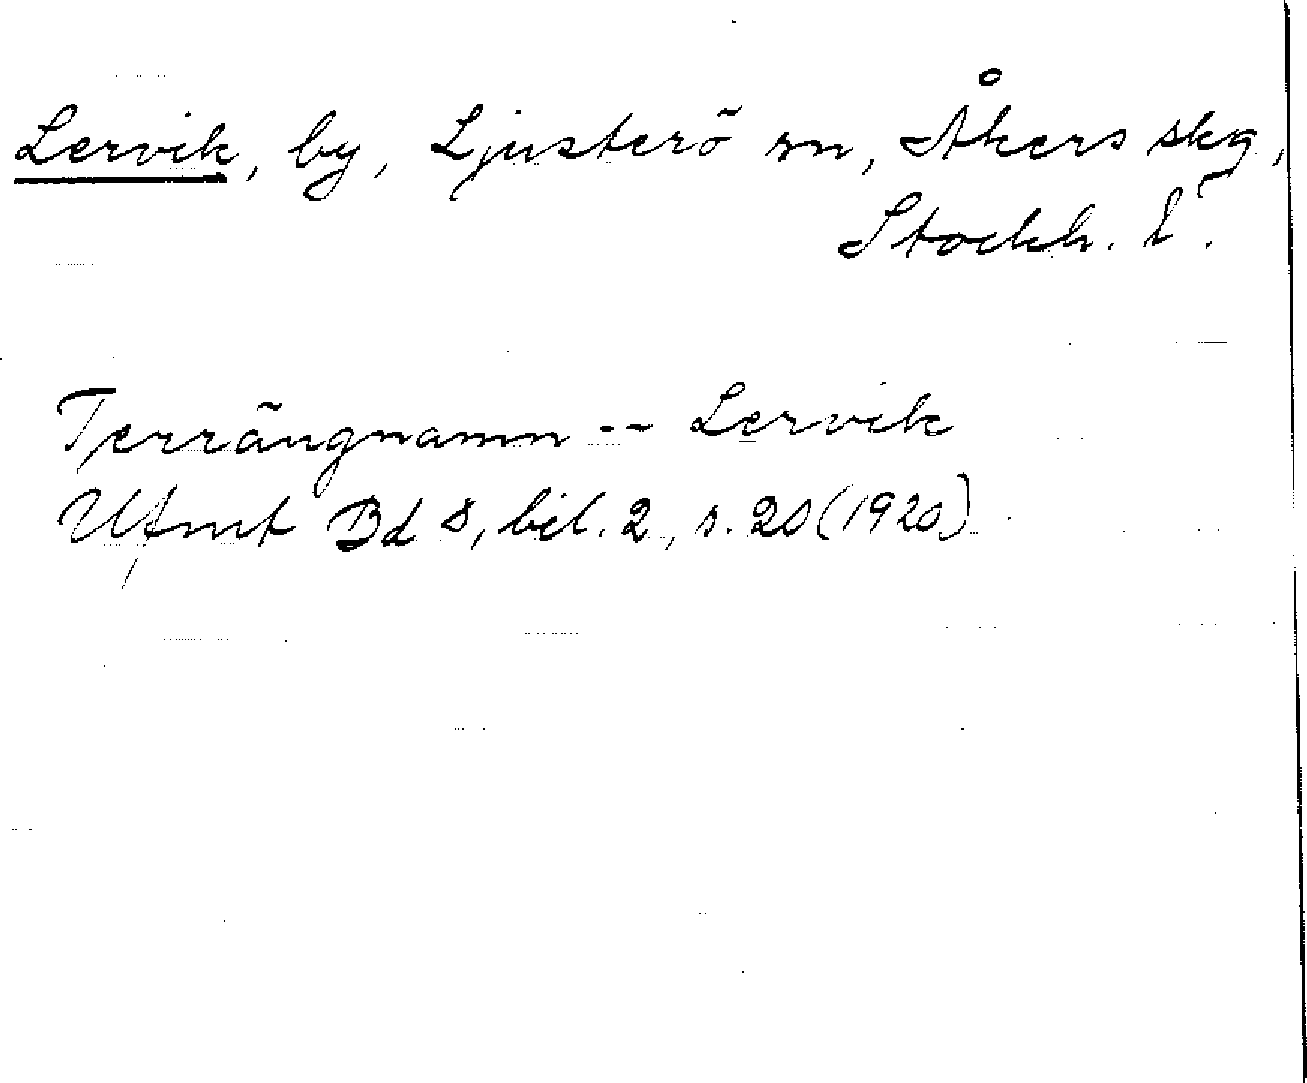 Lervik, by, Ljusterö sn, Åkers skg,
Stockh. l.
Terrängnamn -- Lervik
Ufmt Bd 8, bil. 2, s. 20 (1920)